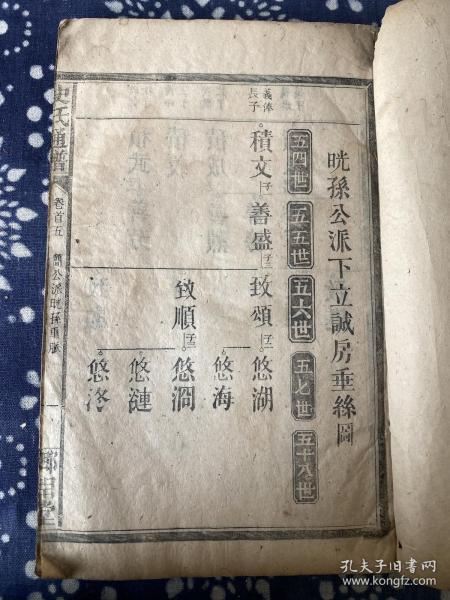 晄孫公派下立誠房垂絲圖
五四世
五五世
五六世
五七世
五十八世
義俸長子
積文 子一
善盛 子二
致頌 子二
悠湖
悠海
致順 子三
悠澗
悠漣
悠洛
史氏通譜
卷首五
孔夫子旧书网
www.kongfz.com